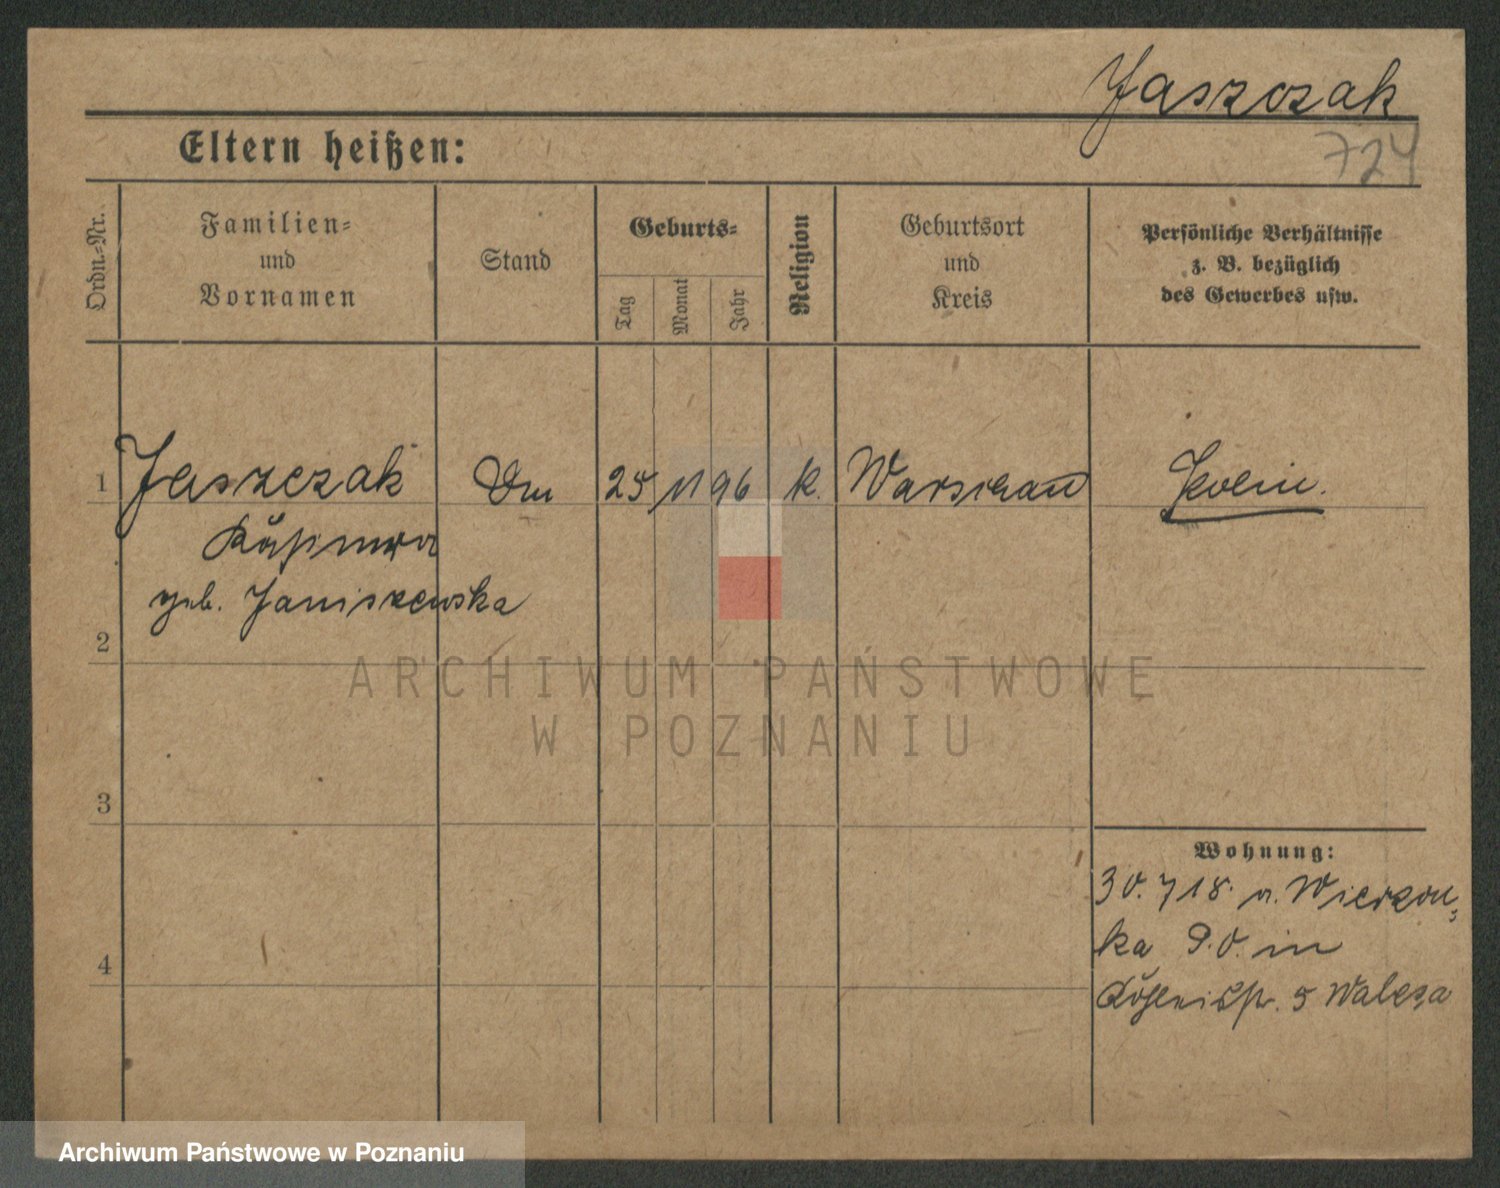 Jaszczak
724
Eltern heißen:
Ordn.-Nr.
Familien-
und
Vornamen
Stand
Geburts-
Tag
Monat
Jahr
Religion
Geburtsort
und
Kreis
Persönliche Verhältnisse
z. B. bezüglich
des Gewerbes usw.
1 Jaszczak 25 11 96 k. Warschau
Kasimira
geb. Janiszewska
2
3
4
Wohnung:
30. 7 18. a. Wierzon-
ka P.O. in
5 Walcza
ARCHIWUM PAŃSTWOWE
W POZNANIU
Archiwum Państwowe w Poznaniu